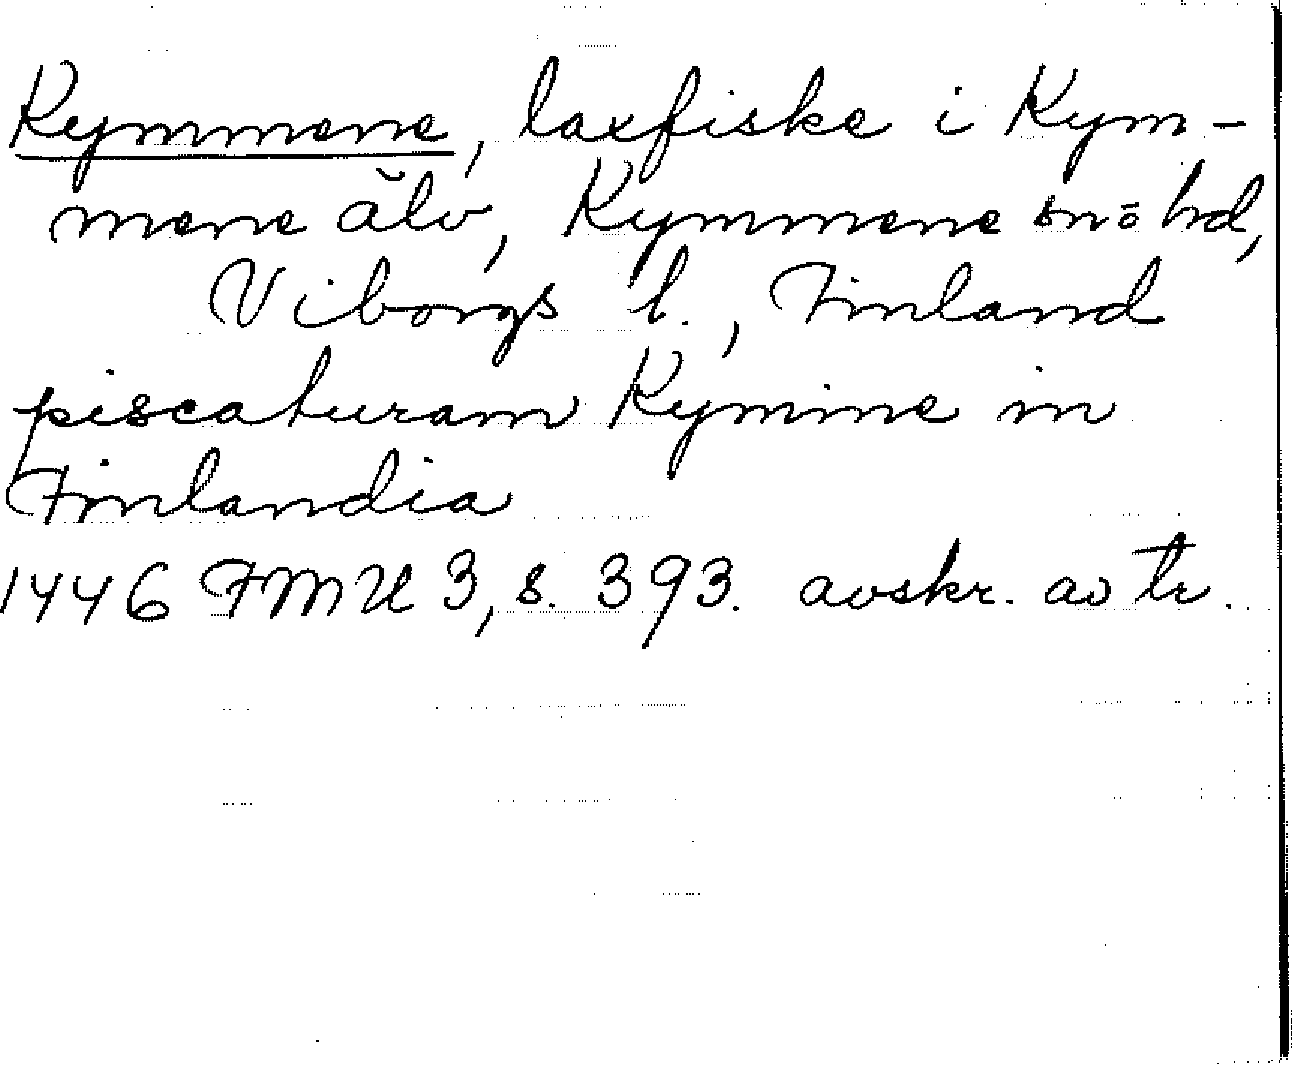 Kymmene, laxfiske i Kym-
mene älv, Kymmene sn o hd,
Viborgs l., Finland
piscaturam Kymine in
Finlandia
1446 FMU 3, s. 393. avskr. av tr.